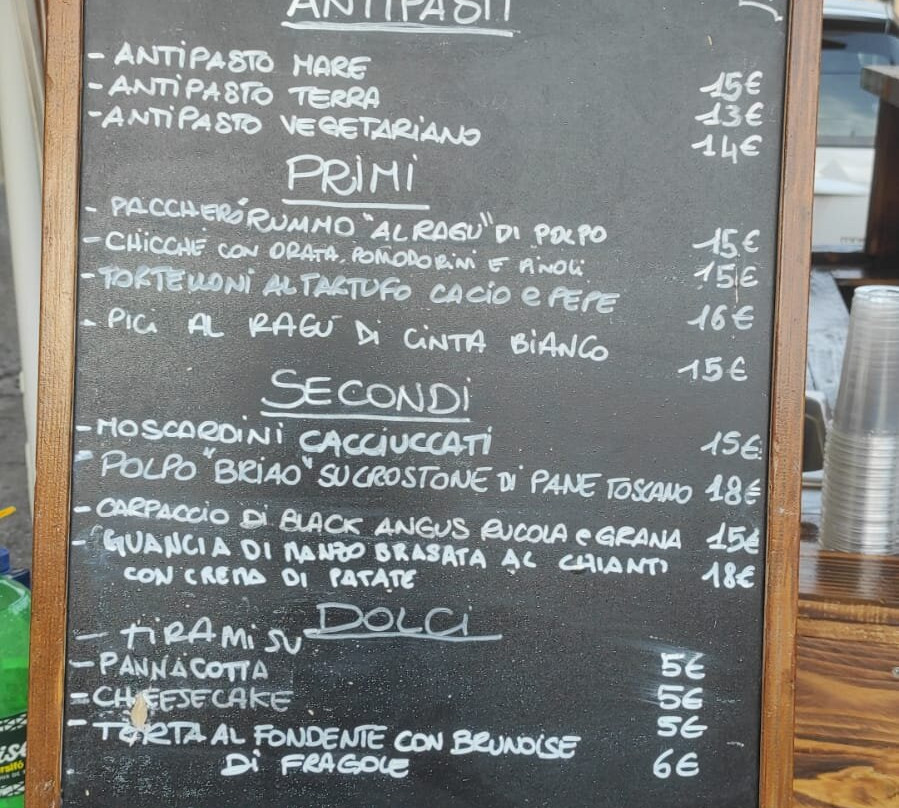 ANTIPASTI
- ANTIPASTO MARE 15€
- ANTIPASTO TERRA 13€
- ANTIPASTO VEGETARIANO 14€
PRIMI
- PACCHERO RUMMO "AL RAGÙ" DI POLPO 15€
- CHICCHE CON ORATA, POMODORINI E PINOLI 15€
- TORTELLONI AL TARTUFO CACIO e PEPE 16€
- PICI AL RAGÙ DI CINTA BIANCO 15€
SECONDI
- MOSCARDINI CACCIUCCATI 15€
- POLPO "BRIAO" SU CROSTONE DI PANE TOSCANO 18€
- CARPACCIO DI BLACK ANGUS RUCOLA e GRANA 15€
- GUANCIA DI MANZO BRASATA AL CHIANTI 18€
CON CREMA DI PATATE
DOLCI
- TIRAMISU 5€
- PANNACOTTA 5€
- CHEESECAKE 5€
- TORTA AL FONDENTE CON BRUNOISE
DI FRAGOLE 6€